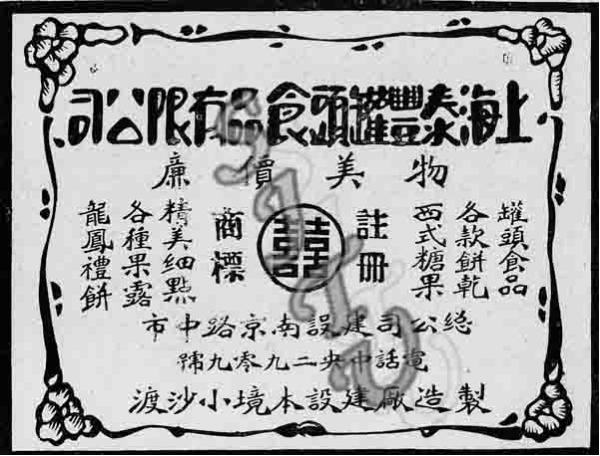 上海泰豐罐頭食品有限公司
物美價廉
罐頭食品
各款餅乾
西式糖果
註冊
囍
商標
精美細點
各種果露
龍鳳禮餅
總公司建設南京路中市
電話中央二九零九號
製造廠建設本境小沙渡